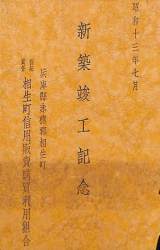 昭和十三年七月
新築竣工記念
兵庫縣赤穂郡相生町
相生町信用販賣購買利用組合